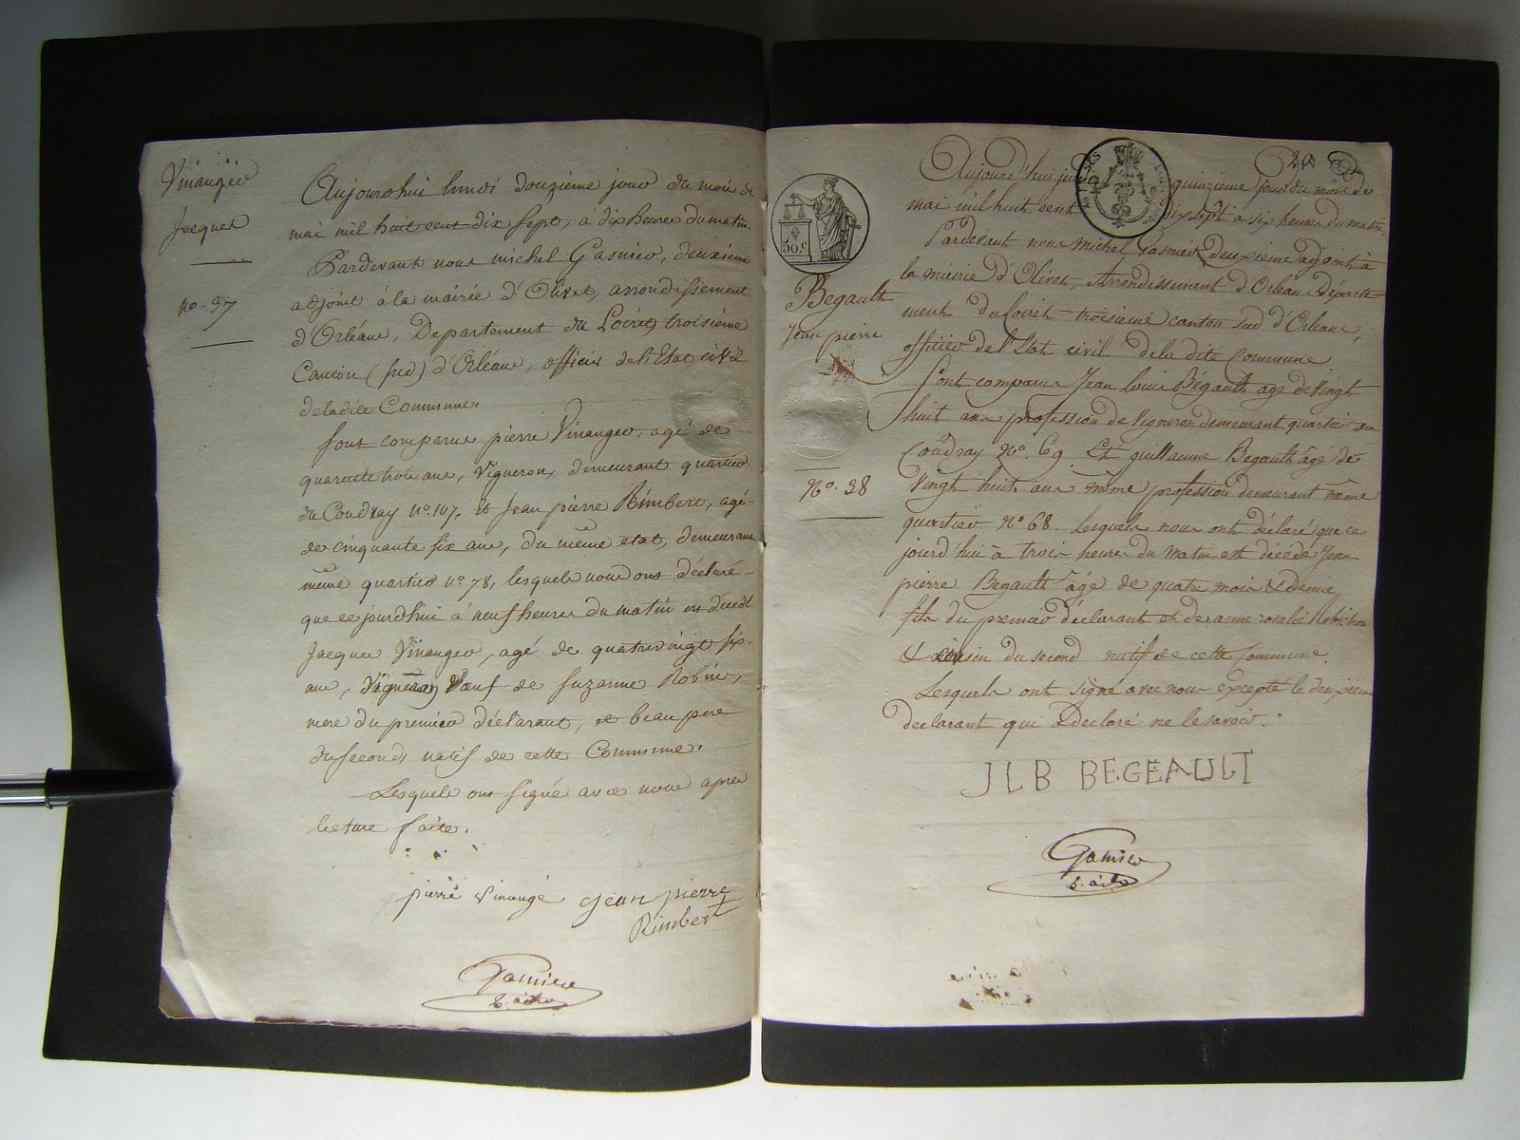 Vinauger
Jacques
no. 37
Aujourd'hui lundi douzième jour du mois de
mai mil huit cent dix sept, a dix heures du matin.
Pardevant nous michel Gasnier, deuxième
adjoint à la mairie d'Olivet, arrondissement
d'Orléans, Departement du Loiret, troisième
Canton (sud) d'Orléans, officier de l'Etat civil
de ladite Commune.
sont comparus pierre Vinauger, agé de
quarante trois ans, Vigneron, demeurant quartier
du Coudray no. 107, et Jean pierre Rimbert, agé
de cinquante six ans, du même etat, demeurant
même quartier no 78, lesquels nous ont déclaré
que cejourdhui à neuf heures du matin est decédé
Jacques Vinauger, agé de quatrevingt six
ans, Vigneron Veuf de Suzanne Robin,
mere du premier déclarant, et beau pere
du second, natif de cette Commune.
Lesquels ont signé avec nous apres
lecture faite.
pierre vinauge jean pierre
Rimbert
Gasnier
30.c
Begault
Jean pierre
No. 38
Aujourd'hui jeudi quinzieme jour du mois de
mai mil huit cent dix sept à six heures du matin
Pardevant nous Michel Gasnier Deuxieme adjoint à
la mairie d'Olivet, Arrondissement d'Orleans Départe-
ment du Loiret troisieme canton sud d'Orleans,
officier de l'Etat civil de la dite Commune
Sont comparus Jean Louis Bégault age de Vingt
huit ans profession de Vigneron demeurant quartier du
Coudray No. 69 Et guillaume Begault âge de
Vingt huit ans même profession demeurant même
quartier No 68. lesquels nous ont déclaré que ce
jourd'hui à trois heures du matin est décédé Jean
pierre Begault âgé de quatre mois & demie,
fils du premier déclarant et de anne rosalie
& cousin du second natif de cette Commune.
Lesquels ont signé avec nous excepté le deuxième
declarant qui a declaré ne le savoir.
JLB BEGEAULT
Gasnier